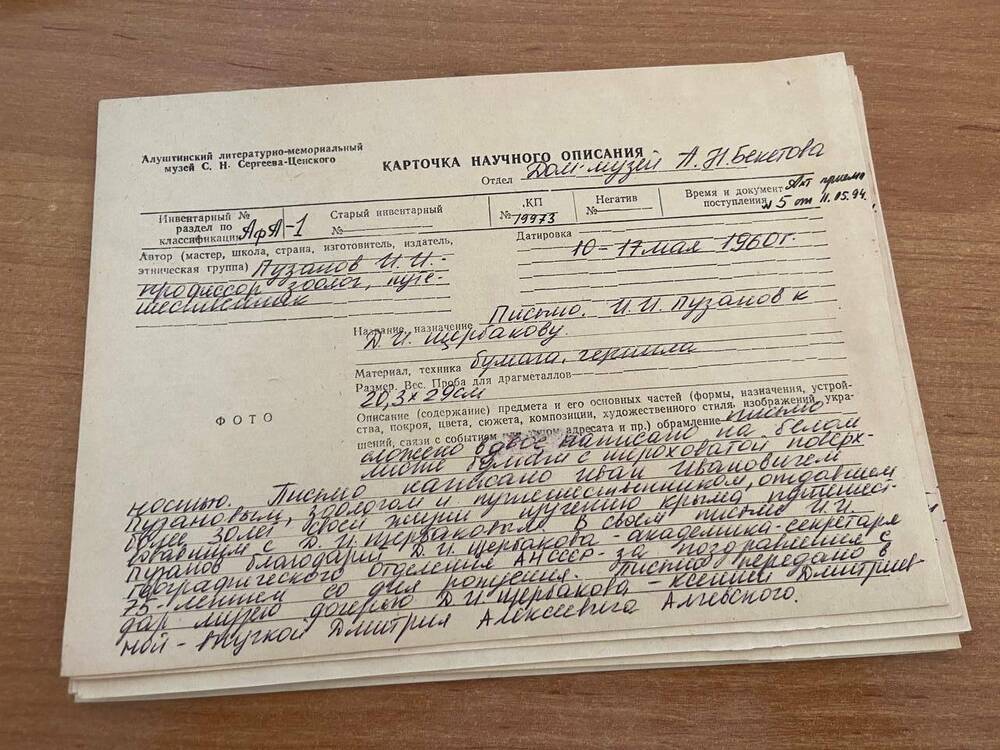 Алуштинский литературно-мемориальный
музей С. Н. Сергеева-Ценского
КАРТОЧКА НАУЧНОГО ОПИСАНИЯ
Отдел Дом-музей А.Н.Бекетова
Инвентарный №
раздел по
классификации АфА-1
Старый инвентарный
№
КП
№ 19973
Негатив
№
Время и документ Акт приема
поступления № 5 от 11.05.94г.
Автор (мастер, школа, страна, изготовитель, издатель,
этническая группа) Пузанов И.И.-
профессор зоолог, путе-
шественник
Датировка
10-17 мая 1960г.
Название, назначение Письмо. И.И. Пузанов к
Д.И. Щербакову.
Материал, техника бумага, чернила
Размер. Вес. Проба для драгметаллов
20,3х29см
ФОТО
Описание (содержание) предмета и его основных частей (формы, назначения, устрой-
ства, покроя, цвета, сюжета, композиции, художественного стиля, изображений, укра-
шений, связи с событием или лицом адресата и пр.) обрамление письмо
сложено вдвое написано на белом
листе бумаги с шероховатой поверх-
ностью. Письмо написано Иван Ивановичем
Пузановым, зоологом и путешественником, отдавшим
более 30 лет своей жизни изучению Крыма путешест-
вовавшим с Д.И. Щербаковым. В своем письме И.И.
Пузанов благодарит Д.И. Щербакова - академика-секретаря
географического отделения АН СССР за поздравления с
75-летием со дня рождения. Письмо передано в
дар музею дочерью Д.И. Щербакова - Ксенией Дмитриев-
ной - внучкой Дмитрия Алексеевича Алчевского.